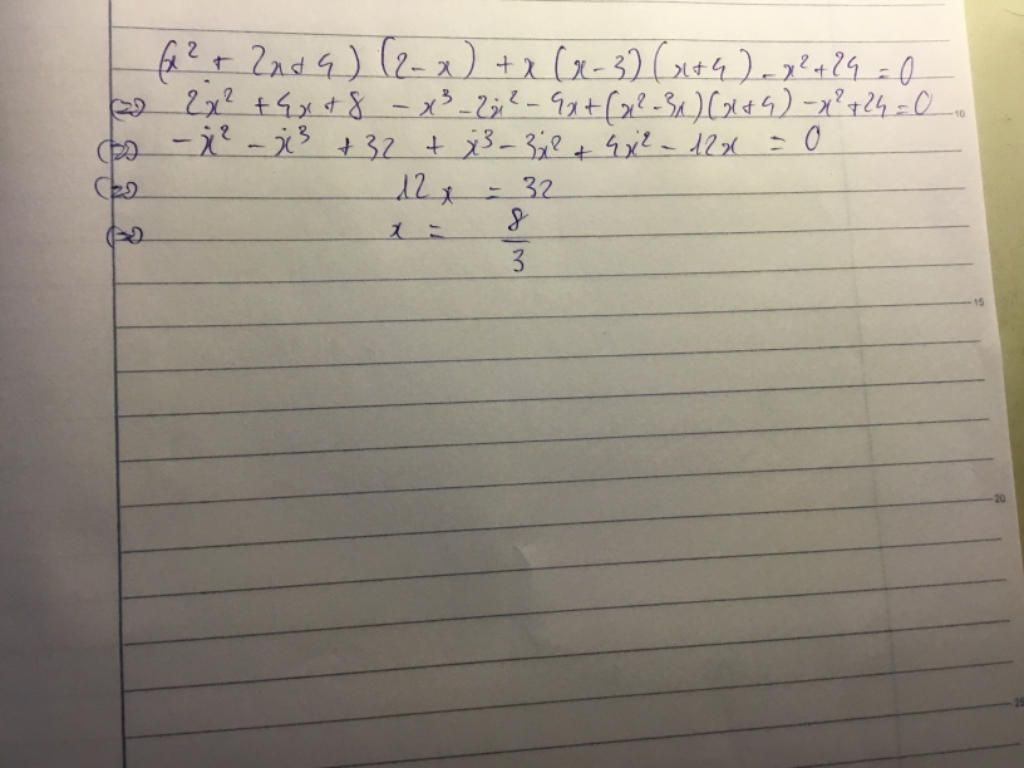 (x² + 2x + 4) (2 - x) + x (x - 3) (x + 4) - x² + 24 = 0
⇔ 2x² + 4x + 8 - x³ - 2x² - 4x + (x² - 3x)(x + 4) - x² + 24 = 0
10
⇔ - x² - x³ + 32 + x³ - 3x² + 4x² - 12x = 0
⇔ 12x = 32
⇔ x = 8/3
15
20
25